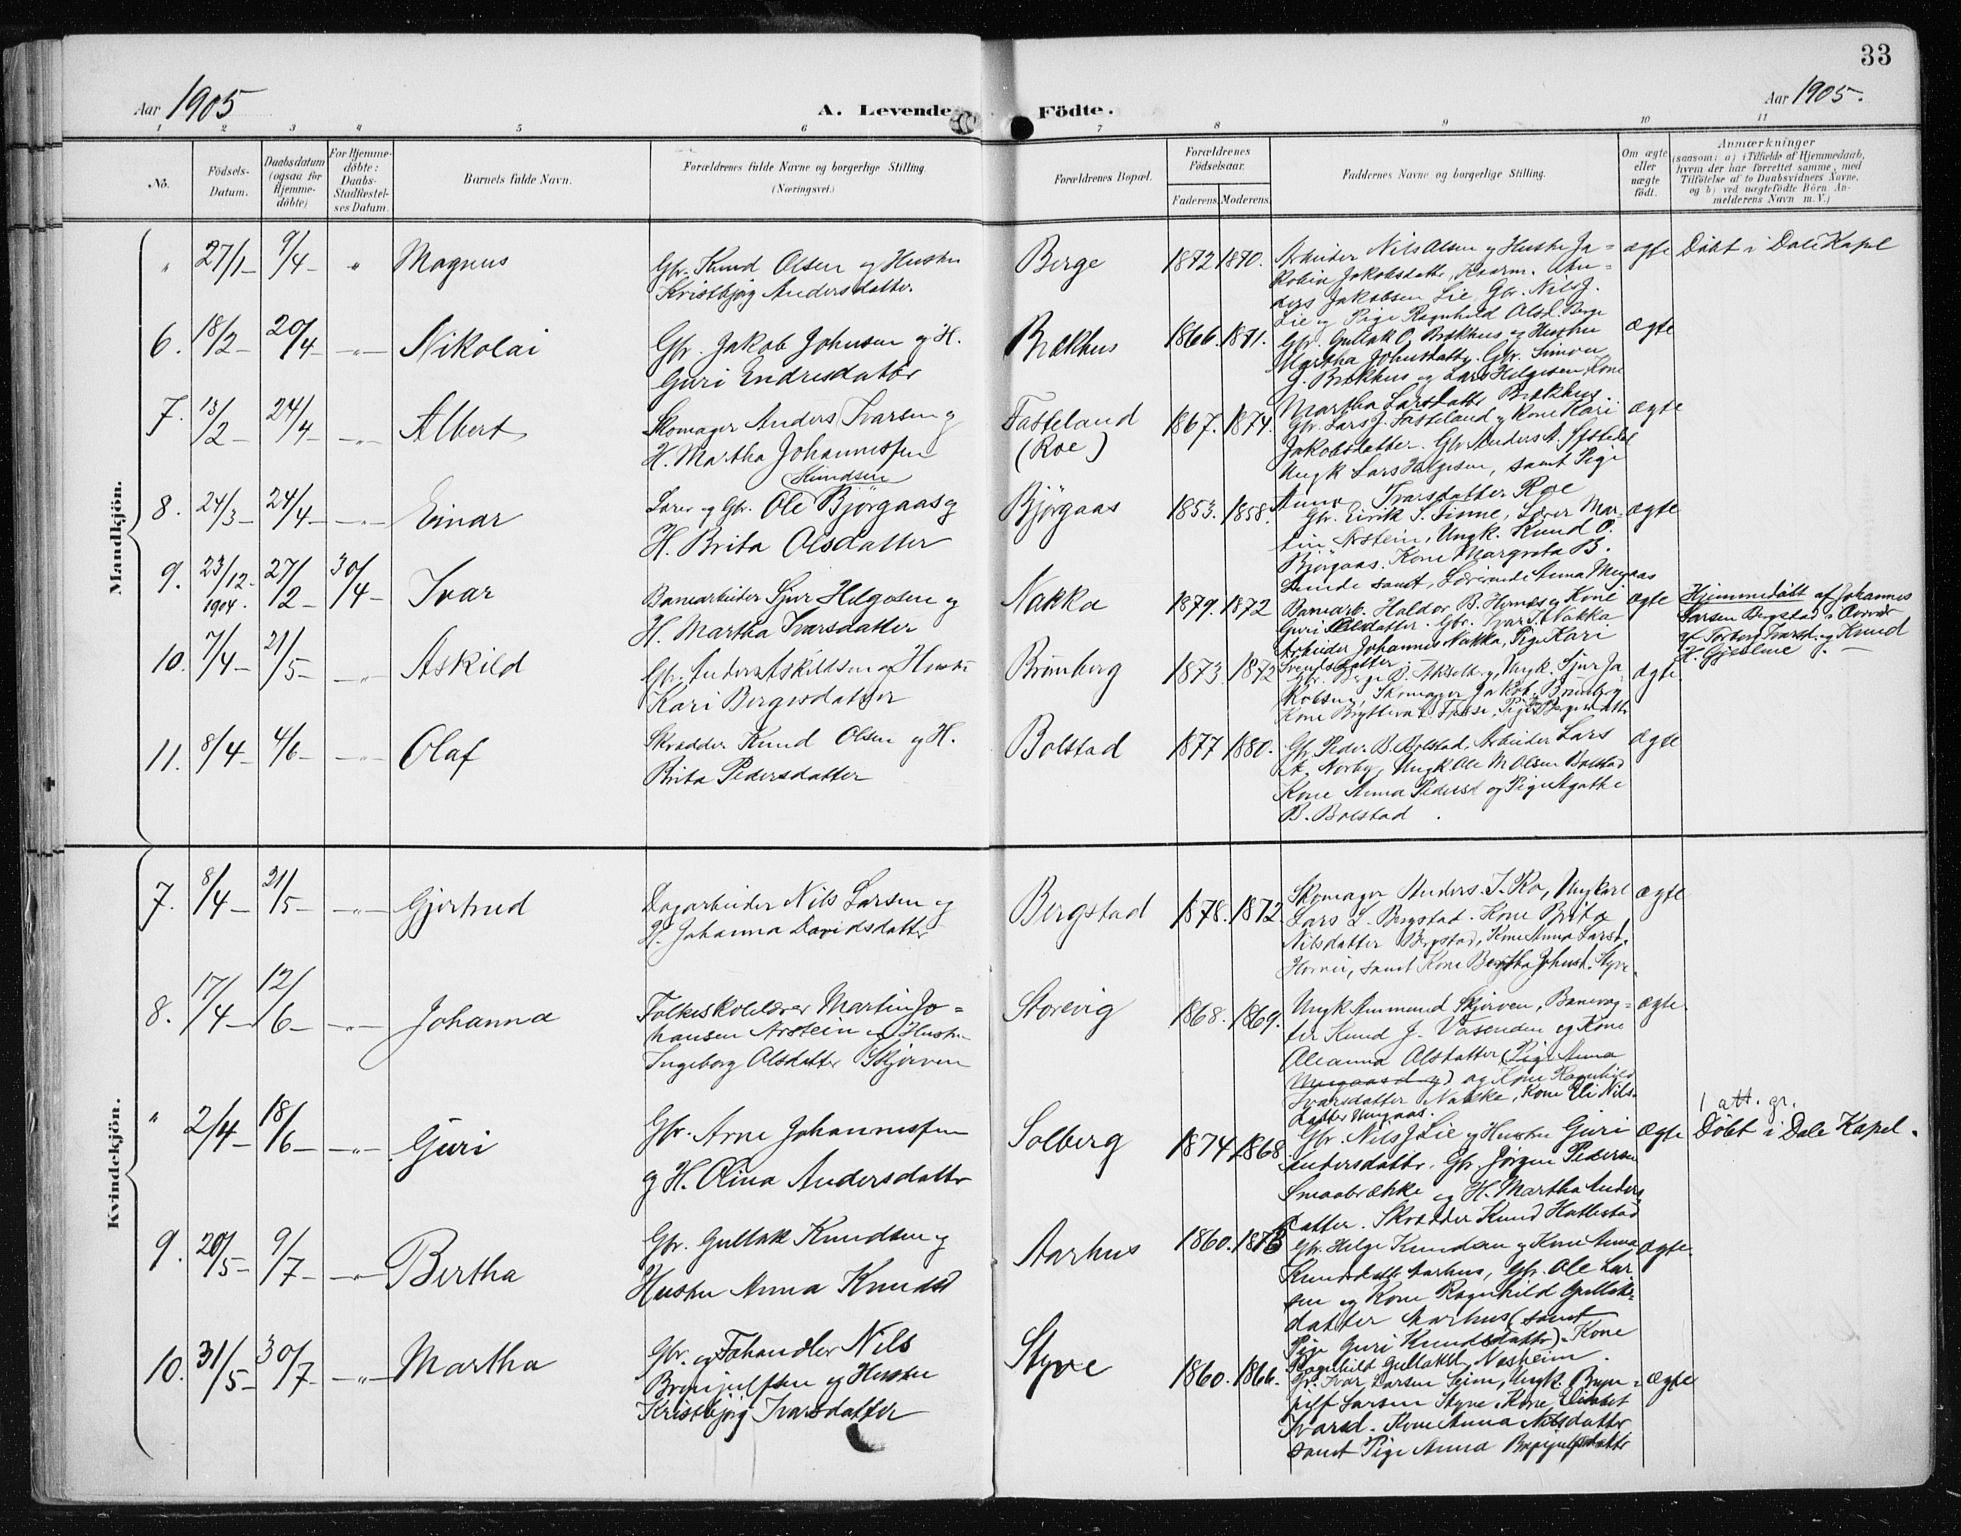 33
Aar 1905
A. Levende Födte.
Aar 1905.
1 2 3 4 5 6 7 8 9 10 11
No.
Födsels-
Datum.
Daabsdatum
(ogsaa for
Hjemme-
döbte)
For Hjemme-
döbte:
Daabs-
Stadfæstel-
ses Datum.
Barnets fulde Navn.
Forældrenes fulde Navne og borgerlige Stilling.
(Næringsvei.)
Forældrenes Bopæl.
Forældrenes
Födselsaar.
Faderens. Moderens.
Faddernes Navne og borgerlige Stilling.
Om ægte
eller
uægte
födt.
Anmærkninger
(saasom: a) i Tilfælde af Hjemmedaab,
hvem der har forrettet samme, med
Tilföielse af to Daabsvidners Navne,
og b) ved uægtefödte Börn An-
melderens Navn m. V.)
Mandkjön.
" 27/1 9/4 " Magnus
Gbr. Knud Olsen og Hustru
Kristbjørg Andersdatter
Berge 1872 1870.
Arbeider Nils Olsen og Hustru Ja-
kobine Jakobsdatter, An-
ders Jakobsen Lie, Gbr. Nils J.
Lie og Pige Ragnhild Olsd. Berge
ægte Døbt i Dale Kapel
6. 18/2 20/4 " Nikolai
Gbr. Jakob Johnsen og H.
Guri Endresdatter
Brækhus 1866. 1871.
Gbr. Gullak O. Brækhus og Hustru
Martha Johnsdatter. Gbr. Simon
J. Brækhus og Lars Helgesen, Kone
Martha Larsdatter Brækhus.
ægte
7. 13/2 24/4 " Albert
Skomager Anders Ivarsen og
H. Martha Johannessen
Fasteland
(Roe)
1867. 1874.
Gbr. Lars J. Fasteland og Kone Kari
Jakobsdatter. Gbr. Anders A.
Ungk Lars Helgesen, samt Pige
Anna Ivarsdatter Roe
ægte
8. 24/3 24/4 " Einar
Knudsen
Lærer og Gbr. Ole Bjørgaas og
H. Brita Olsdatter
Bjørgaas 1853. 1858.
Gbr. Eirik S. Finne, Lærer Mar-
tin Arstein, Ungk. Knud O.
Bjørgaas. Kone Margreta B.
samt, Lærerinde Anna Mugaas
ægte
9. 23/12 1904. 27/2 30/4 Ivar
Banearbeider Sjur Helgesen og
H. Martha Ivarsdatter
Nakka 1879. 1872
Banearb. Haldor B. Hernes og Kone
Guri Olsdatter. Gbr. Ivar J. Nakka
Arbeider Johannes Nakka, Pige Kari
Svendsdatter
ægte
Hjemmedøbt af Johannes
Larsen Bergstad i Overvær
af Torborg Ivarsd. og Knud
H. Gjelme.
10. 7/4 21/5 " Askild
Gbr. Anders Askildsen og Hustru
Kari Bergesdatter
Brunborg 1873. 1872
Gbr. Berge B. Ungk. Sjur Ja-
kobsen, Skomager Jakob Brunborg
Kone Brytteva Pige Bergesdatter
ægte
11. 8/4 4/6 " Olaf
Skrædder Knud Olsen og H.
Brita Pedersdatter
Bolstad 1877 1880.
Gbr. Peder B. Bolstad, Arbeider Lars
Norby, Ungk Ole M Olsen Bolstad
Kone Anna Pedersd og Pige Agathe
B. Bolstad.
ægte
Kvindekjön.
7. 8/4 21/5 " Gjertrud
Dagarbeider Nils Larsen og
H. Johanna Davidsdatter
Bergstad 1878. 1872.
Skomager Anders I. Ro, Ungkarl
Lars L. Bergstad. Kone Brita
Nilsdatter Bergstad, Kone Anna Larsd.
Horvei, samt Kone Bertha Johnsd. Styve.
ægte
8. 17/4 12/6 " Johanna
Folkeskolelærer Martin Jo-
hansen Arstein og Hustru
Ingeborg Olsdatter Skjerven
Storevig 1868. 1869.
Ungk Ammund Skjerven, Banevog-
ter Knud J. Vasenden og Kone
Oleanna Olsdatter (Pige Anna
Mugaas og) og Kone Ragnhild
Ivarsdatter Nakka, Kone Eli Nils-
datter Mugaas.
ægte.
" 2/4 18/6 " Guri
Gbr. Arne Johannessen
og H. Olina Andersdatter
Solberg 1874. 1868.
Gbr. Nils J Lie og Hustru Guri
Andersdatter. Gbr. Jørgen Pedersen
Smaabrække og H. Martha Anders
datter. Skrædder Knud Hattestad
ægte
1 att. gr.
Døbt i Dale Kapel.
9. 20/5 9/7 " Bertha
Gbr. Gullak Knudsen og
Hustru Anna Knudsd
Aarhus 1860. 1873
Gbr. Helge Knudsen og Kone Anna
Knudsdatter Aarhus, Gbr. Ole Lar
sen og Kone Ragnhild Gullaks-
datter Aarhus (samt
Pige Guri Knudsdatter). Kone
Ragnhild Gullaksd. Næsheim.
ægte
10. 31/5 30/7 " Martha
Gbr. og Fæhandler Nils
Brynjulfsen og Hustru
Kristbjørg Ivarsdatter
Styve 1860. 1866.
Gbr. Ivar Larsen Seim, Ungk. Bryn-
julf Larsen Styve, Kone Elisabet
Ivarsd. Kone Anna Nilsdatter
samt Pige Anna Brynjulfsdatter
ægte